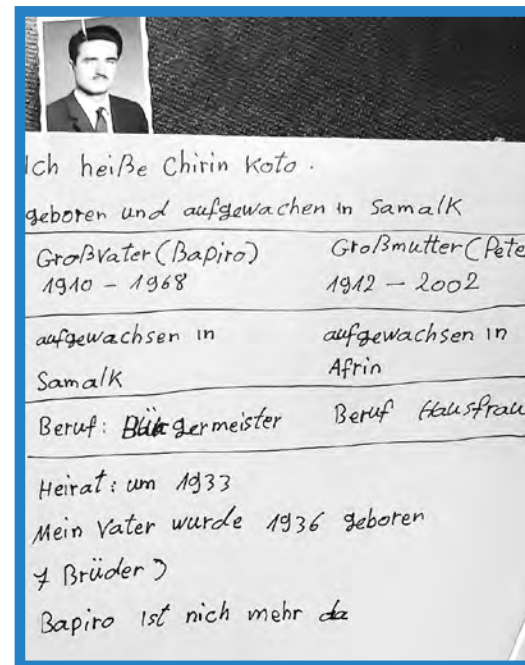 Ich heiße Chirin Koto.
geboren und aufgewachen in Samalk
Großvater (Bapiro) Großmutter (Pete
1910 – 1968 1912 – 2002
aufgewachsen in aufgewachsen in
Samalk Afrin
Beruf: Bürgermeister Beruf Hausfrau
Heirat: um 1933
Mein Vater wurde 1936 geboren
7 Brüder)
Bapiro ist nich mehr da